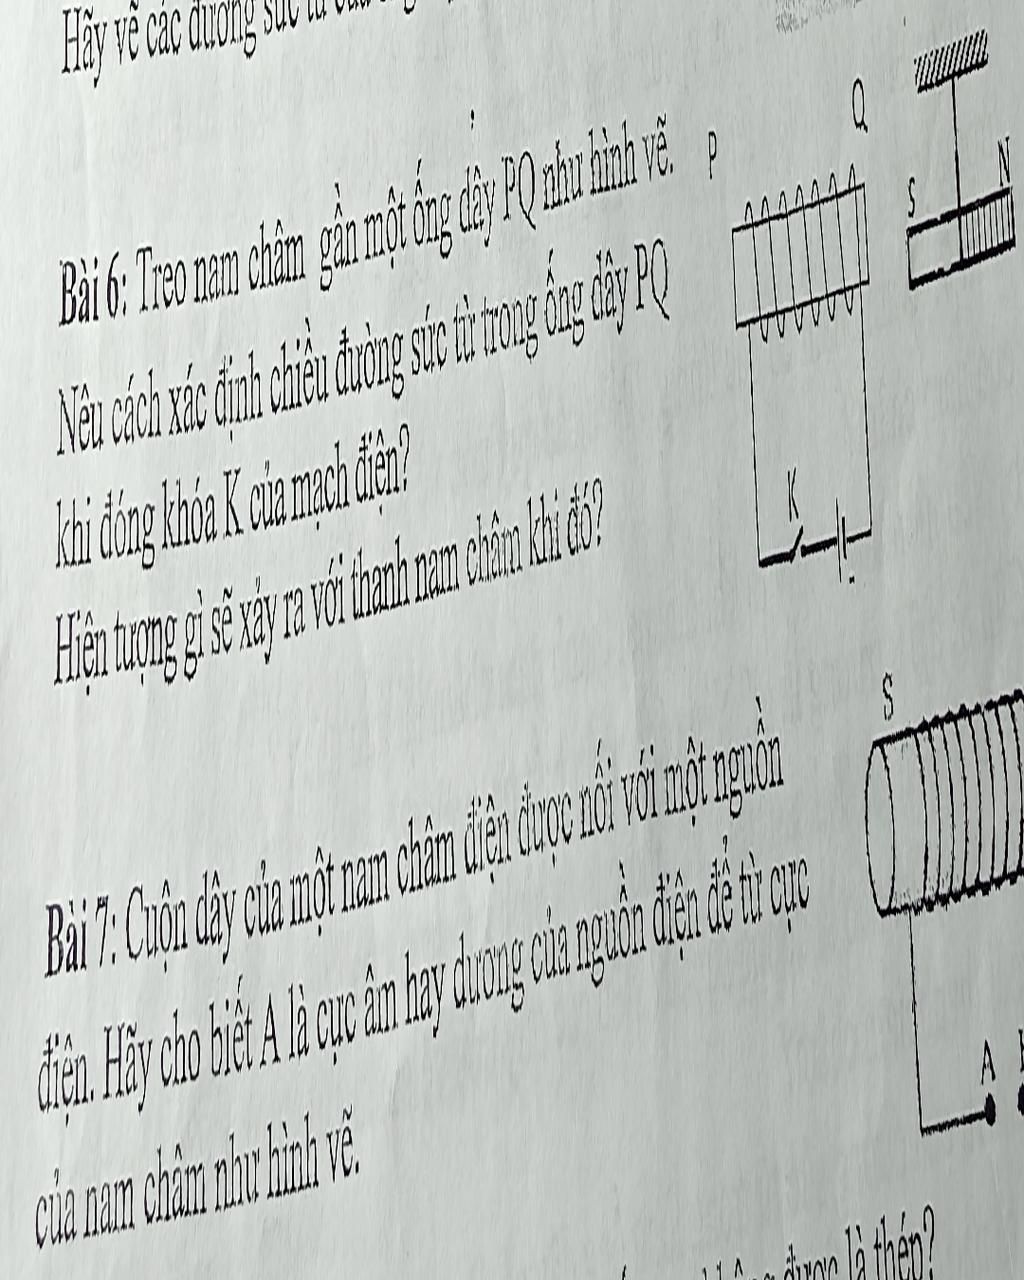 Hãy vẽ các đường sức từ của
Bài 6: Treo nam châm gần một ống dây PQ như hình vẽ.
Nêu cách xác định chiều đường sức từ trong ống dây PQ
khi đóng khóa K của mạch điện?
Hiện tượng gì sẽ xảy ra với thanh nam châm khi đó?
P
Q
S
N
K
Bài 7: Cuộn dây của một nam châm điện được nối với một nguồn
điện. Hãy cho biết A là cực âm hay dương của nguồn điện để từ cực
của nam châm như hình vẽ.
S
A
được là thép?